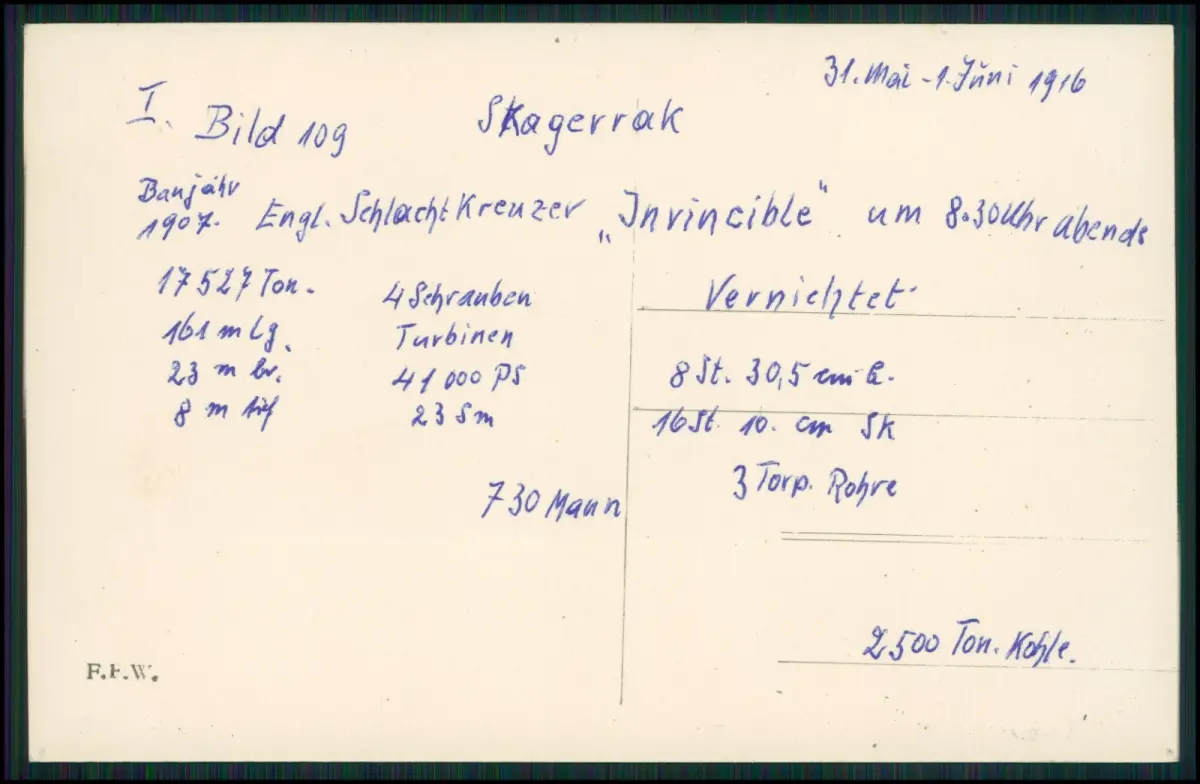 31. Mai - 1. Juni 1916
I. Bild 109 Skagerrak
Baujahr
1907. Engl. Schlachtkreuzer „Invincible" um 8.30 Uhr abends
Vernichtet.
17527 Ton. 4 Schrauben
161 m lg. Turbinen
23 m br. 41000 PS
8 m tief 23 Sm
730 Mann
8 St. 30,5 cm
16 St. 10. cm SK
3 Torp. Rohre
2500 Ton. Kohle.
F.F.W.